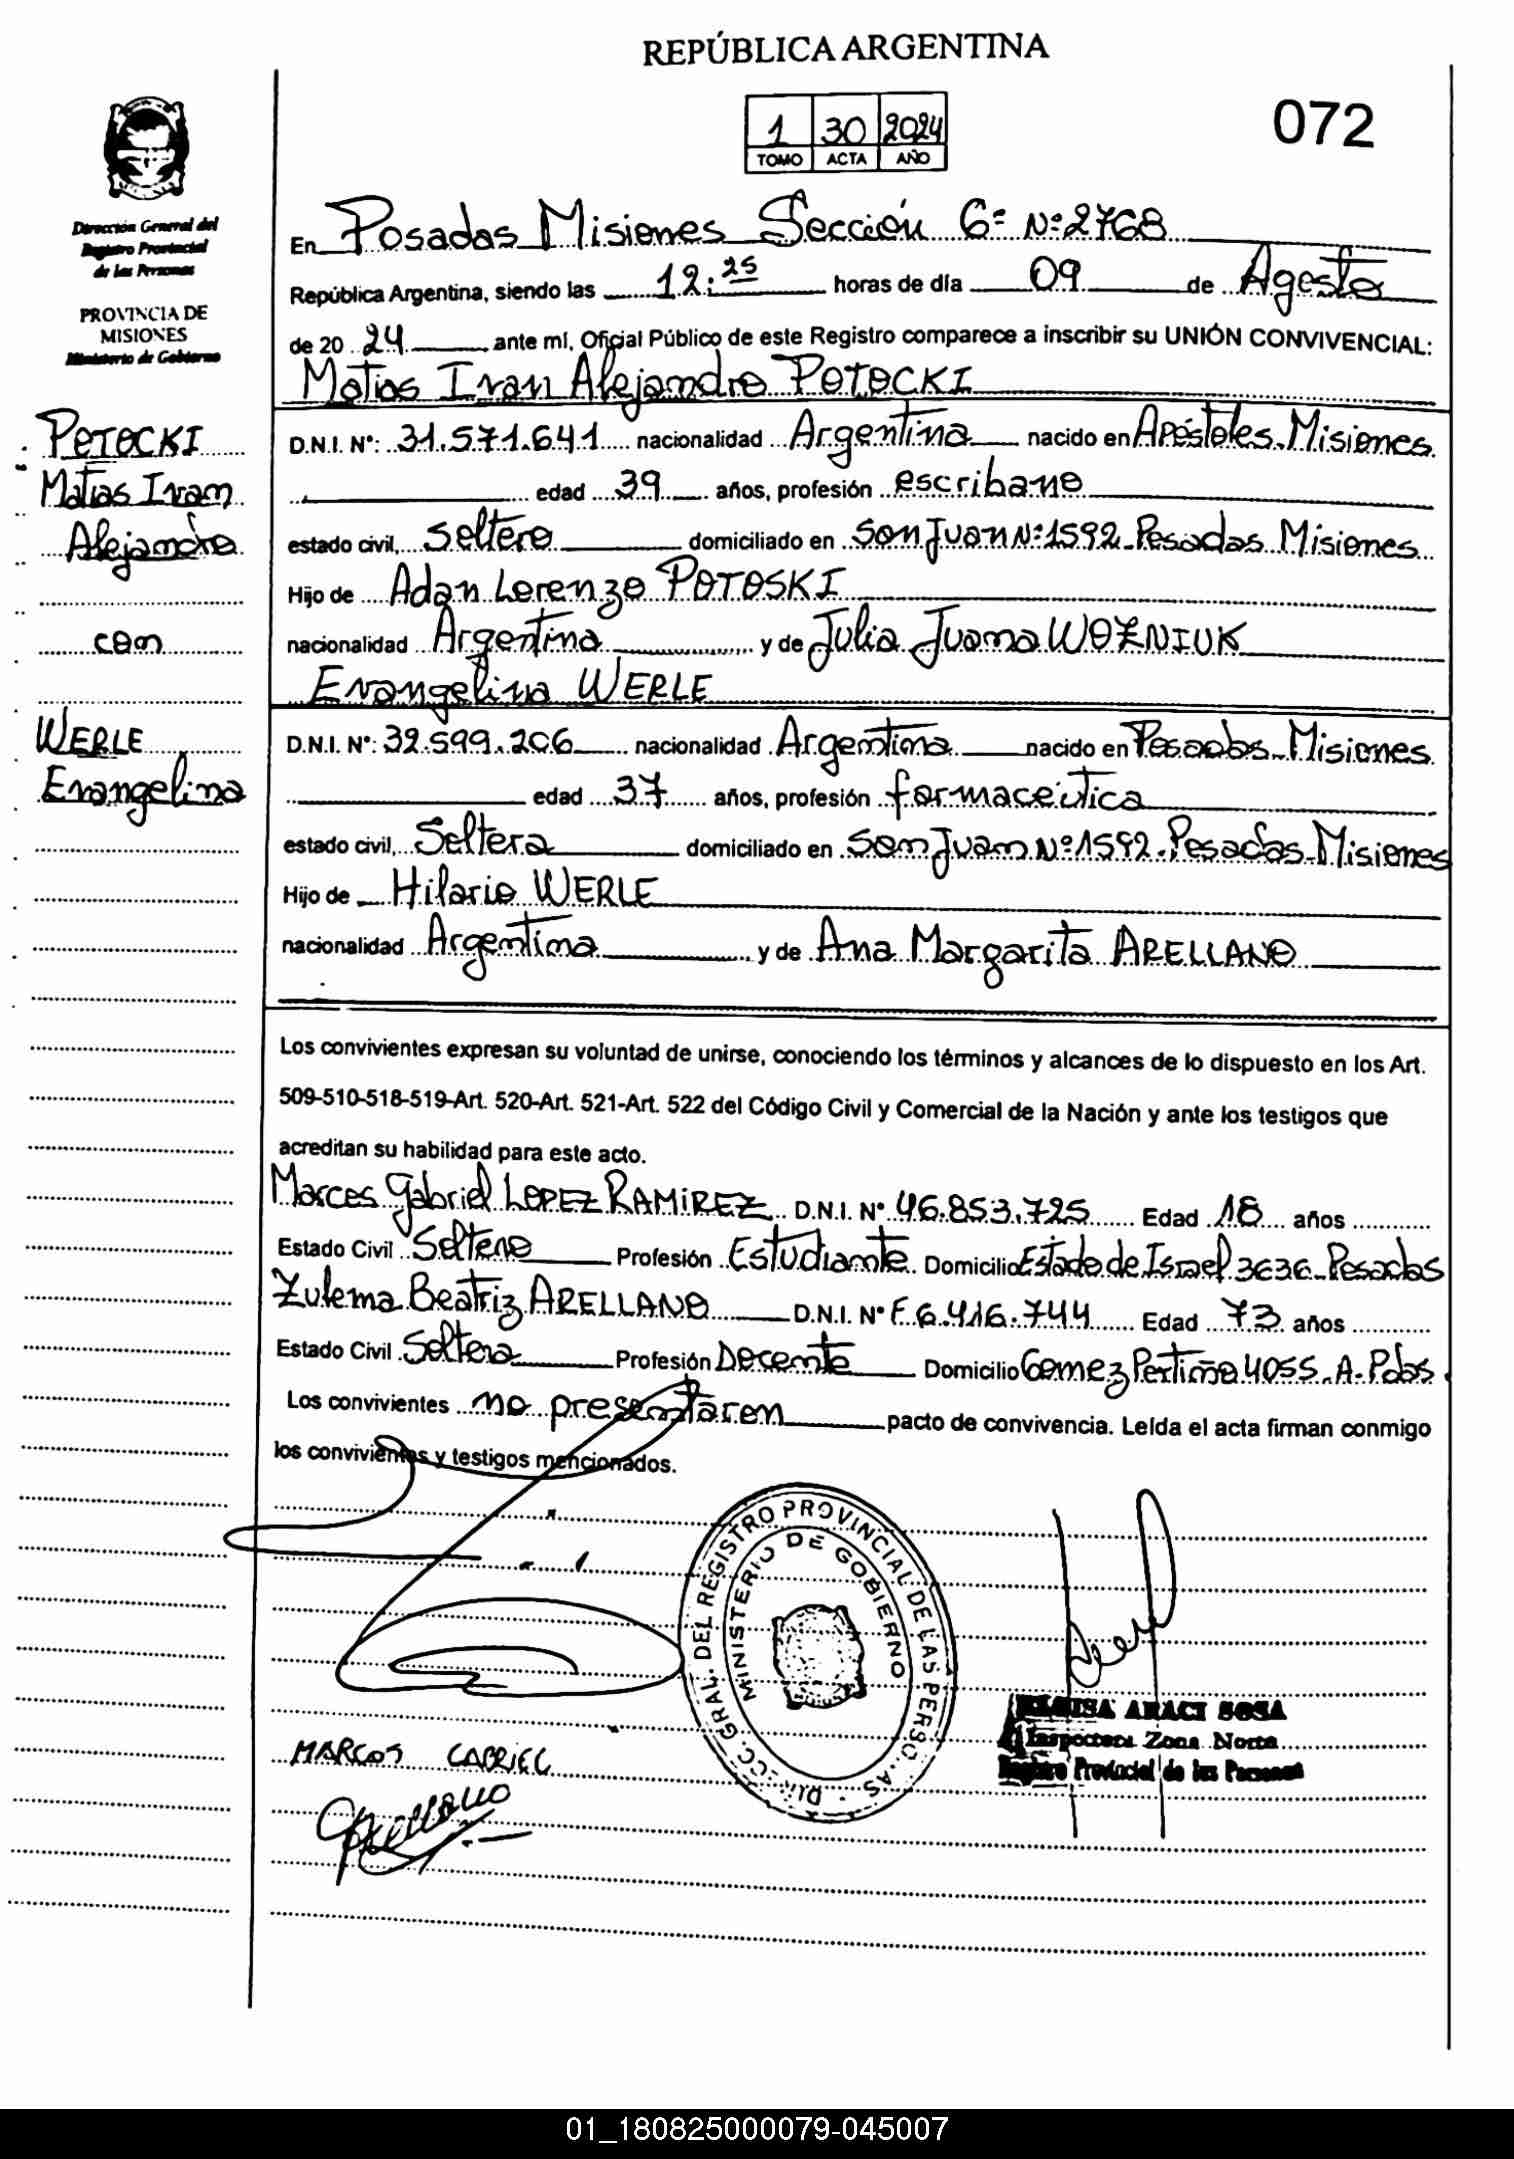 REPÚBLICA ARGENTINA
072
1 30 2024
TOMO ACTA AÑO
Dirección General del
Registro Provincial
de las Personas
PROVINCIA DE
MISIONES
Ministerio de Gobierno
En Posadas Misiones Sección 6º Nº 2768
República Argentina, siendo las 12:25 horas de día 09 de Agosto
de 20 24 ante mí, Oficial Público de este Registro comparece a inscribir su UNIÓN CONVIVENCIAL:
Matias Ivan Alejandro POTOCKI
POTOCKI
Matias Ivan
Alejandro
con
WERLE
Evangelina
D.N.I. Nº: 31.571.641 nacionalidad Argentina nacido en Apóstoles Misiones
edad 39 años, profesión escribano
estado civil, Soltero domiciliado en San Juan Nº 1592 Posadas Misiones
Hijo de Adan Lorenzo POTOSKI
nacionalidad Argentina y de Julia Juana WOZNIUK
Evangelina WERLE
D.N.I. Nº: 32.599.206 nacionalidad Argentina nacido en Posadas Misiones
edad 37 años, profesión farmaceútica
estado civil, Soltera domiciliado en San Juan Nº 1592 Posadas Misiones
Hijo de Hilario WERLE
nacionalidad Argentina y de Ana Margarita ARELLANO
Los convivientes expresan su voluntad de unirse, conociendo los términos y alcances de lo dispuesto en los Art.
509-510-518-519-Art. 520-Art. 521-Art. 522 del Código Civil y Comercial de la Nación y ante los testigos que
acreditan su habilidad para este acto.
Marcos Gabriel LOPEZ RAMIREZ D.N.I. Nº 46.853.725 Edad 18 años
Estado Civil Soltero Profesión Estudiante Domicilio Estado de Israel 3636 Posadas
Zulema Beatriz ARELLANO D.N.I. Nº F 6.416.744 Edad 73 años
Estado Civil Soltera Profesión Docente Domicilio Gomez Portiño 4055 A. Pdas.
Los convivientes no presentaron pacto de convivencia. Leída el acta firman conmigo
los convivientes y testigos mencionados.
DIRECC. GRAL. DEL REGISTRO PROVINCIAL DE LAS PERSONAS
MINISTERIO DE GOBIERNO
ARACI SOSA
Inspectora Zona Norte
Registro Provincial de las Personas
MARCOS GABRIEL
Arellano
01_180825000079-045007